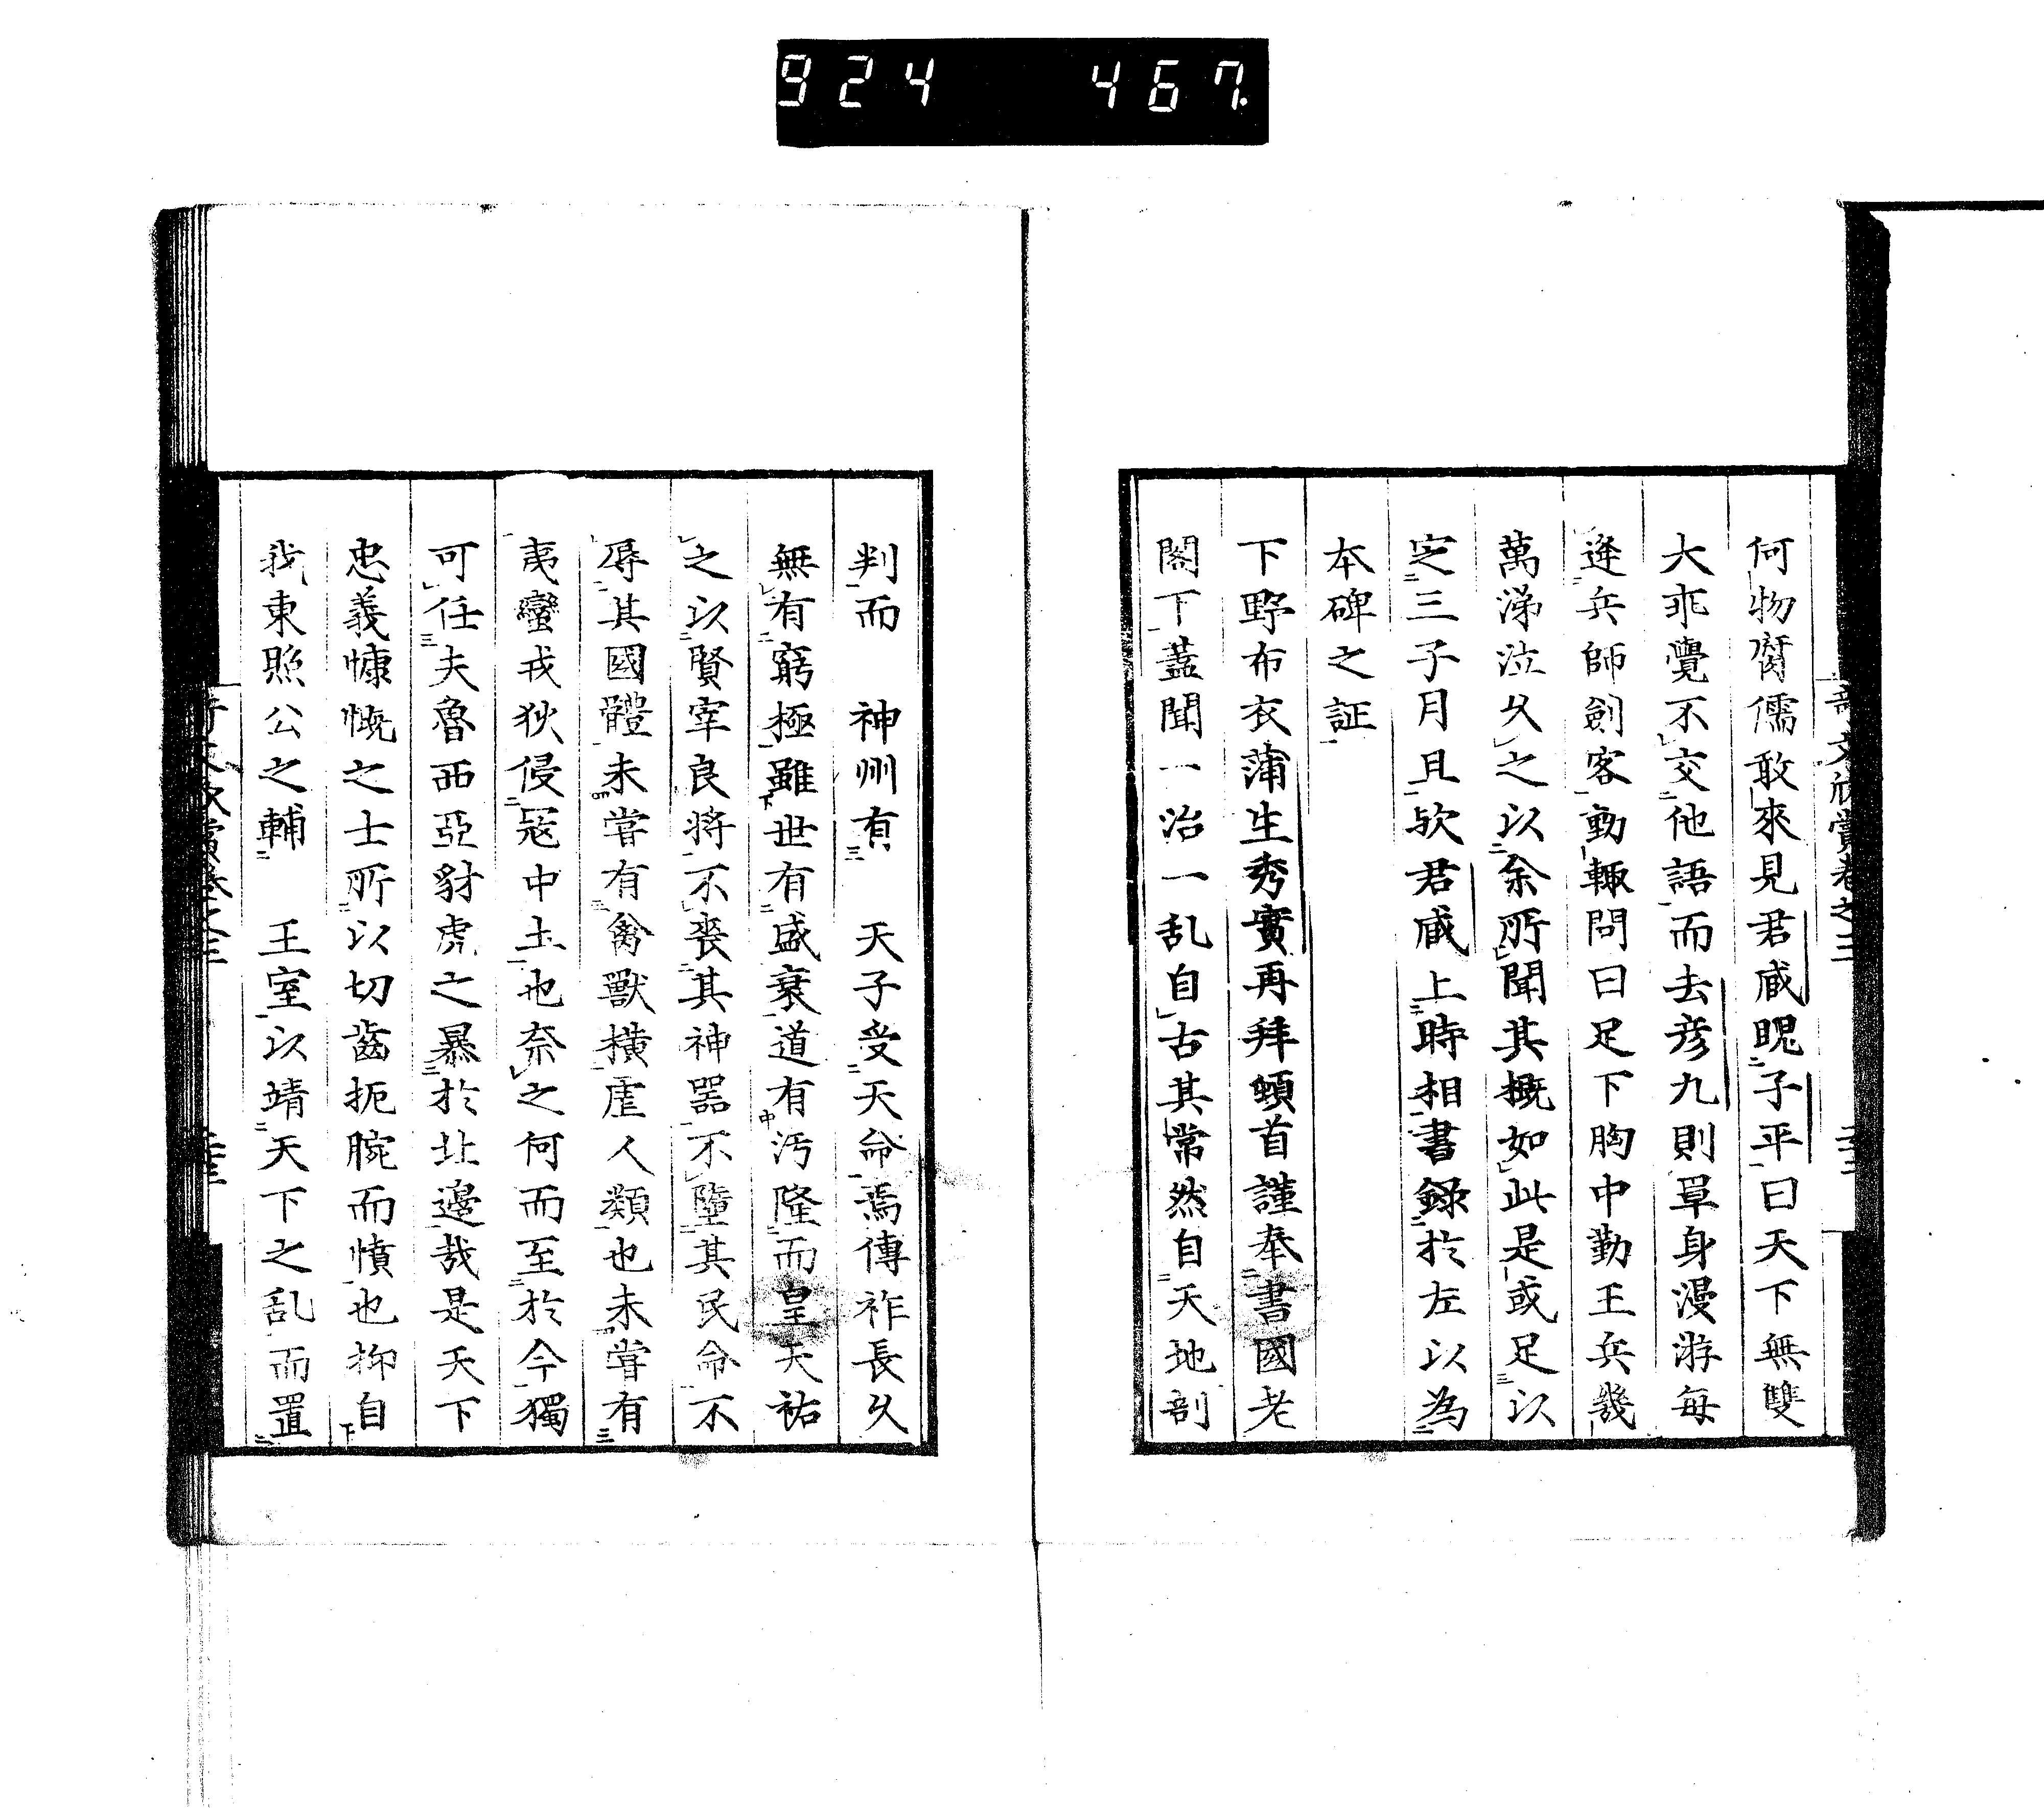 924 467.
何物腐儒敢來見君臧睨子平曰天下無雙
大乖覺不交他語而去彦九則單身漫游每
逢兵師劍客動輒問曰足下胸中勤王兵幾
萬涕泣久之以余所聞其概如此是或足以
定三子月旦欤君臧上時相書錄於左以為
本碑之証
下野布衣蒲生秀實再拜頓首謹奉書國老
閣下蓋聞一治一乱自古其常然自天地剖
判而 神州有 天子受天命焉傳祚長久
無有窮極雖世有盛衰道有汚隆而皇天祐
之以賢宰良将不喪其神器不墮其民命不
辱其國體未嘗有禽獸橫虐人類也未嘗有
夷蠻戎狄侵寇中土也奈之何而至於今獨
可任夫魯西亞豺虎之暴於北邊哉是天下
忠義慷慨之士所以切齒扼腕而憤也抑自
我東照公之輔 王室以靖天下之乱而置